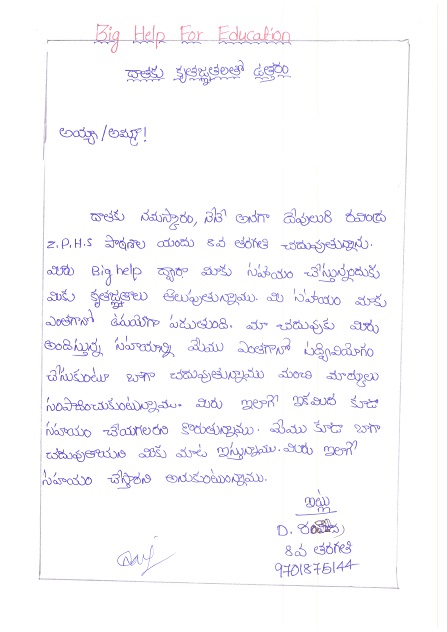 Big Help For Education
దాతకు కృతజ్ఞతలతో ఉత్తరం
అయ్యా/అమ్మా!
దాతకు నమస్కారం, నేను అనగా దేవులురి రవింద్ర
Z.P.H.S పాఠశాల యందు 8వ తరగతి చదువుతున్నాను.
మిరు Big help ద్వారా మాకు సహాయం చేస్తున్నందుకు
మికు కృతజ్ఞతలు తెలుపుతున్నాము. మి సహాయం మాకు
ఎంతగానో ఉపయోగ పడుతుంది. మా చదువుకు మిరు
అందిస్తున్న సహాయాన్ని మేము ఎంతగానో సద్వినియోగం
చేసుకుంటూ బాగా చదువుతున్నాము మంచి మార్కులు
సంపాదించుకుంటున్నాము. మిరు ఇలాగే ఇకమిద కూడా
సహాయం చేయగలరని కోరుతున్నాము. మేము కూడా బాగా
చదువుతాయని మికు మాట ఇస్తున్నాము. మిరు ఇలాగే
సహాయం చేస్తారని అనుకుంటుంన్నాము.
ఇట్లు
D. రవింద్ర
8వ తరగతి
9701875144